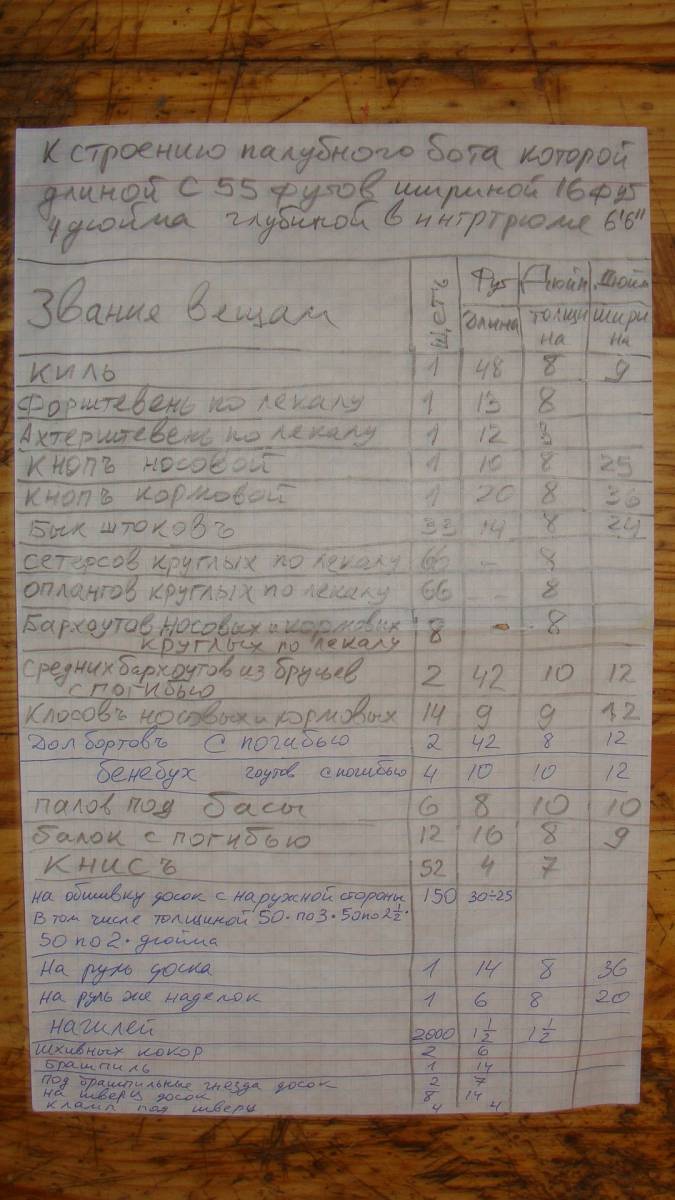 К строению палубного бота которой
длиной С 55 футов шириной 16 фут
4 дюйма глубиной в интртрюме 6'6"
Звание вещам Щ,сть Фут длина Дюйм толщи на Дюйм шири на
киль 1 48 8 9
Форштевень по лекалу 1 13 8
Ахтерштевень по лекалу 1 12 8
Кнопъ носовой 1 10 8 25
кнопъ кормовой 1 20 8 36
Бык штоковъ 33 14 8 24
сетерсов круглых по лекалу 66 - 8
оплангов круглых по лекалу 66 - - 8
Бархоутов носовых и кормовых
круглых по лекалу 8 - 8
Средних бархоутов из брусьев
с погибью 2 42 10 12
Клосовъ носовых и кормовых 14 9 9 12
Дол бортовъ с погибью 2 42 8 12
бенебух гоутов с погибью 4 10 10 12
палов под басы 6 8 10 10
балок с погибью 12 16 8 9
Книсъ 52 4 7
на обшивку досок с наружной стороны 150 30÷25
В том числе толщиной 50·по3·50по2½·
50 по 2· дюйма
На руль доска 1 14 8 36
на руль же наделок 1 6 8 20
нагилей 2000 1½ 1½
шхивных кокор 2 6
брашпиль 1 14
под брашпильные гнезда досок 2 7
на шверц досок 8 14
кламп под шверц 4 4